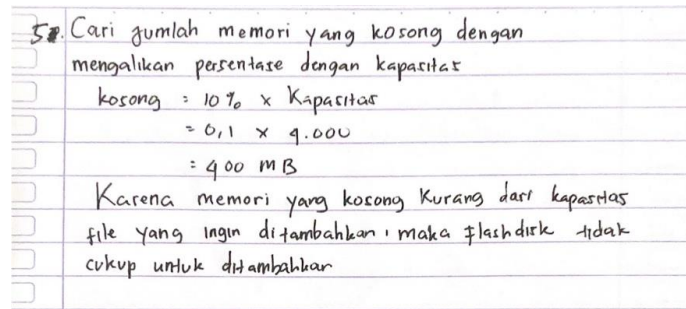 5. Cari jumlah memori yang kosong dengan
mengalikan persentase dengan kapasitas
kosong = 10% x Kapasitas
= 0,1 x 4.000
= 400 MB
Karena memori yang kosong kurang dari kapasitas
file yang ingin ditambahkan, maka flashdisk tidak
cukup untuk ditambahkan